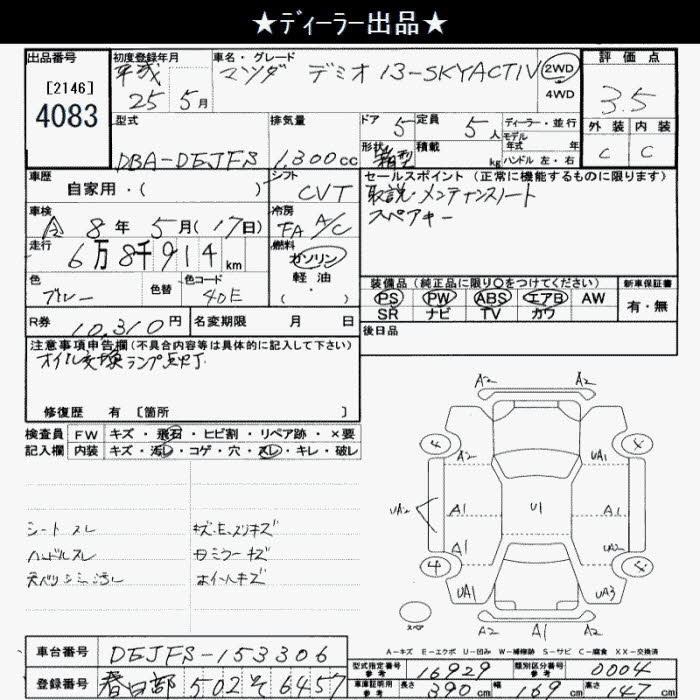 ★ディーラー出品★
出品番号
[2146]
4083
初度登録年月
平成
25 5月
車名・グレード
マツダ デミオ 13-SKYACTIV
2WD
4WD
評価点
3.5
外装 内装
C C
型式
DBA-DEJFS
排気量
1,300cc
ドア 5
定員 5人
ディーラー・並行
モデル年式 年
形状 箱型
積載 kg
ハンドル 左・右
車歴
自家用・( )
シフト
CVT
セールスポイント (正常に機能するものに限ります)
取説・メンテナンスノート
スペアキー
車検
8年 5月(17日)
冷房
FA A/C
走行
6万8千914km
燃料
ガソリン
軽油
( ・ )
色
ブルー
色替
色コード
40E
装備品 (純正品に限り○をつけてください)
PS PW ABS エアB AW
SR ナビ TV カワ
新車保証書
有・無
R券 10,310円
名変期限 月 日
後日品
注意事項申告欄(不具合内容等は具体的に記入して下さい)
オイル交換ランプ点灯.
修復歴 有 [箇所 ]
検査員記入欄
FW キズ・飛石・ヒビ割・リペア跡・×要
内装 キズ・汚れ・コゲ・穴・スレ・キレ・破レ
シート スレ
ハンドルスレ
天バリシミ汚レ
キズ・E・スリキズ
ミラーキズ
ホイールキズ
A2 A2
4 4
A2 UA1
UA2 A1 U1 A1
A1 UA2
4 4
UA1 UA3
A2 A1 A2
スペア
A-キズ E-エクボ U-凹み W-補修跡 S-サビ C-腐食 XX-交換済
車台番号 DEJFS-153306
登録番号 春日部 502 そ 6457
型式指定番号 参考 16929
類別区分番号 参考 0004
車庫証明用 参考
長さ 390cm
幅 169cm
高さ 47cm